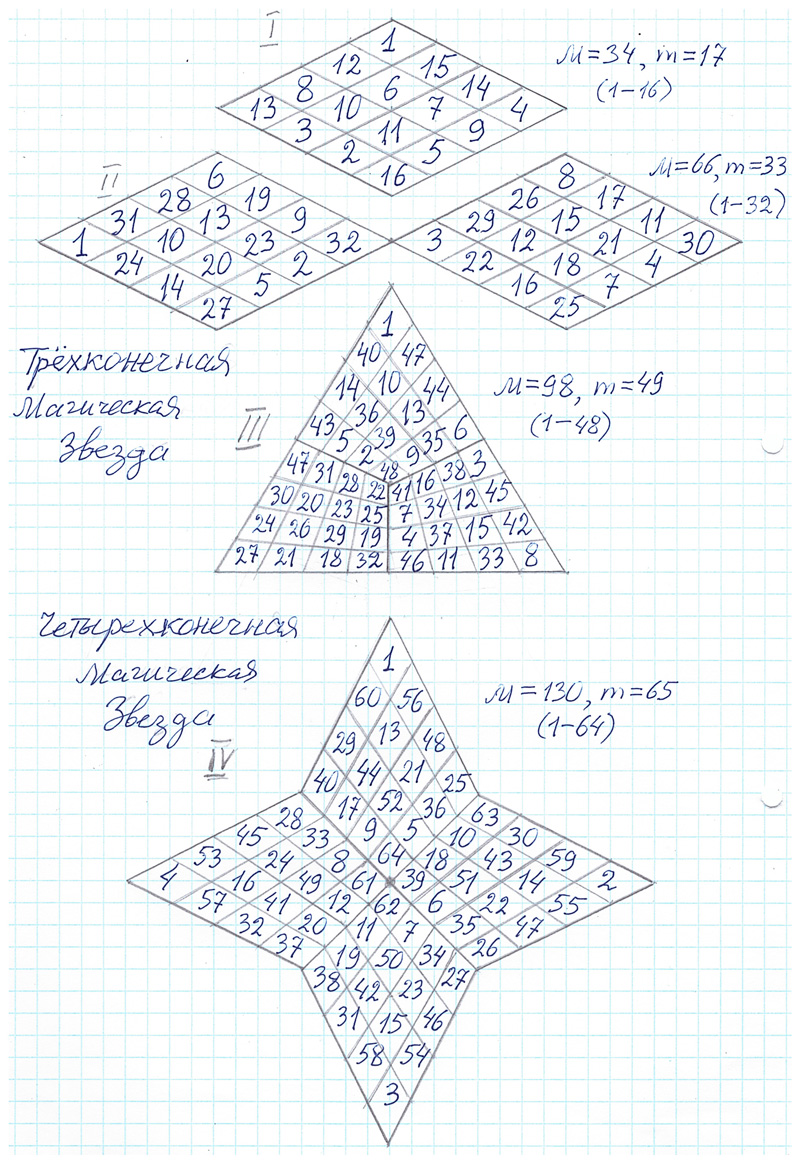 I
M=34, m=17
(1-16)
1
12 15
8 6 14
13 10 7 4
3 11 9
2 5
16
II
M=66, m=33
(1-32)
6
28 19
31 13 9
1 10 23 32
24 20 2
14 5
27
8
26 17
29 15 11
3 12 21 30
22 18 4
16 7
25
Трёхконечная
Магическая
Звезда
III
M=98, m=49
(1-48)
1
40 47
14 10 44
43 36 13 6
5 39 35
2 9
48
47 31 28 22
30 20 23 25
24 26 29 19
27 21 18 32
41 16 38 3
7 34 12 45
4 37 15 42
46 11 33 8
Четырехконечная
Магическая
Звезда
IV
M=130, m=65
(1-64)
1
60 56
29 13 48
40 44 21 25
17 52 36
9 5
64
28
45 33
53 24 8
4 16 49 61
57 41 12
32 20
37
63
10 30
18 43 59
39 51 14 2
6 22 55
35 47
26
62
11 7
19 50 34
38 42 23 27
31 15 46
58 54
3